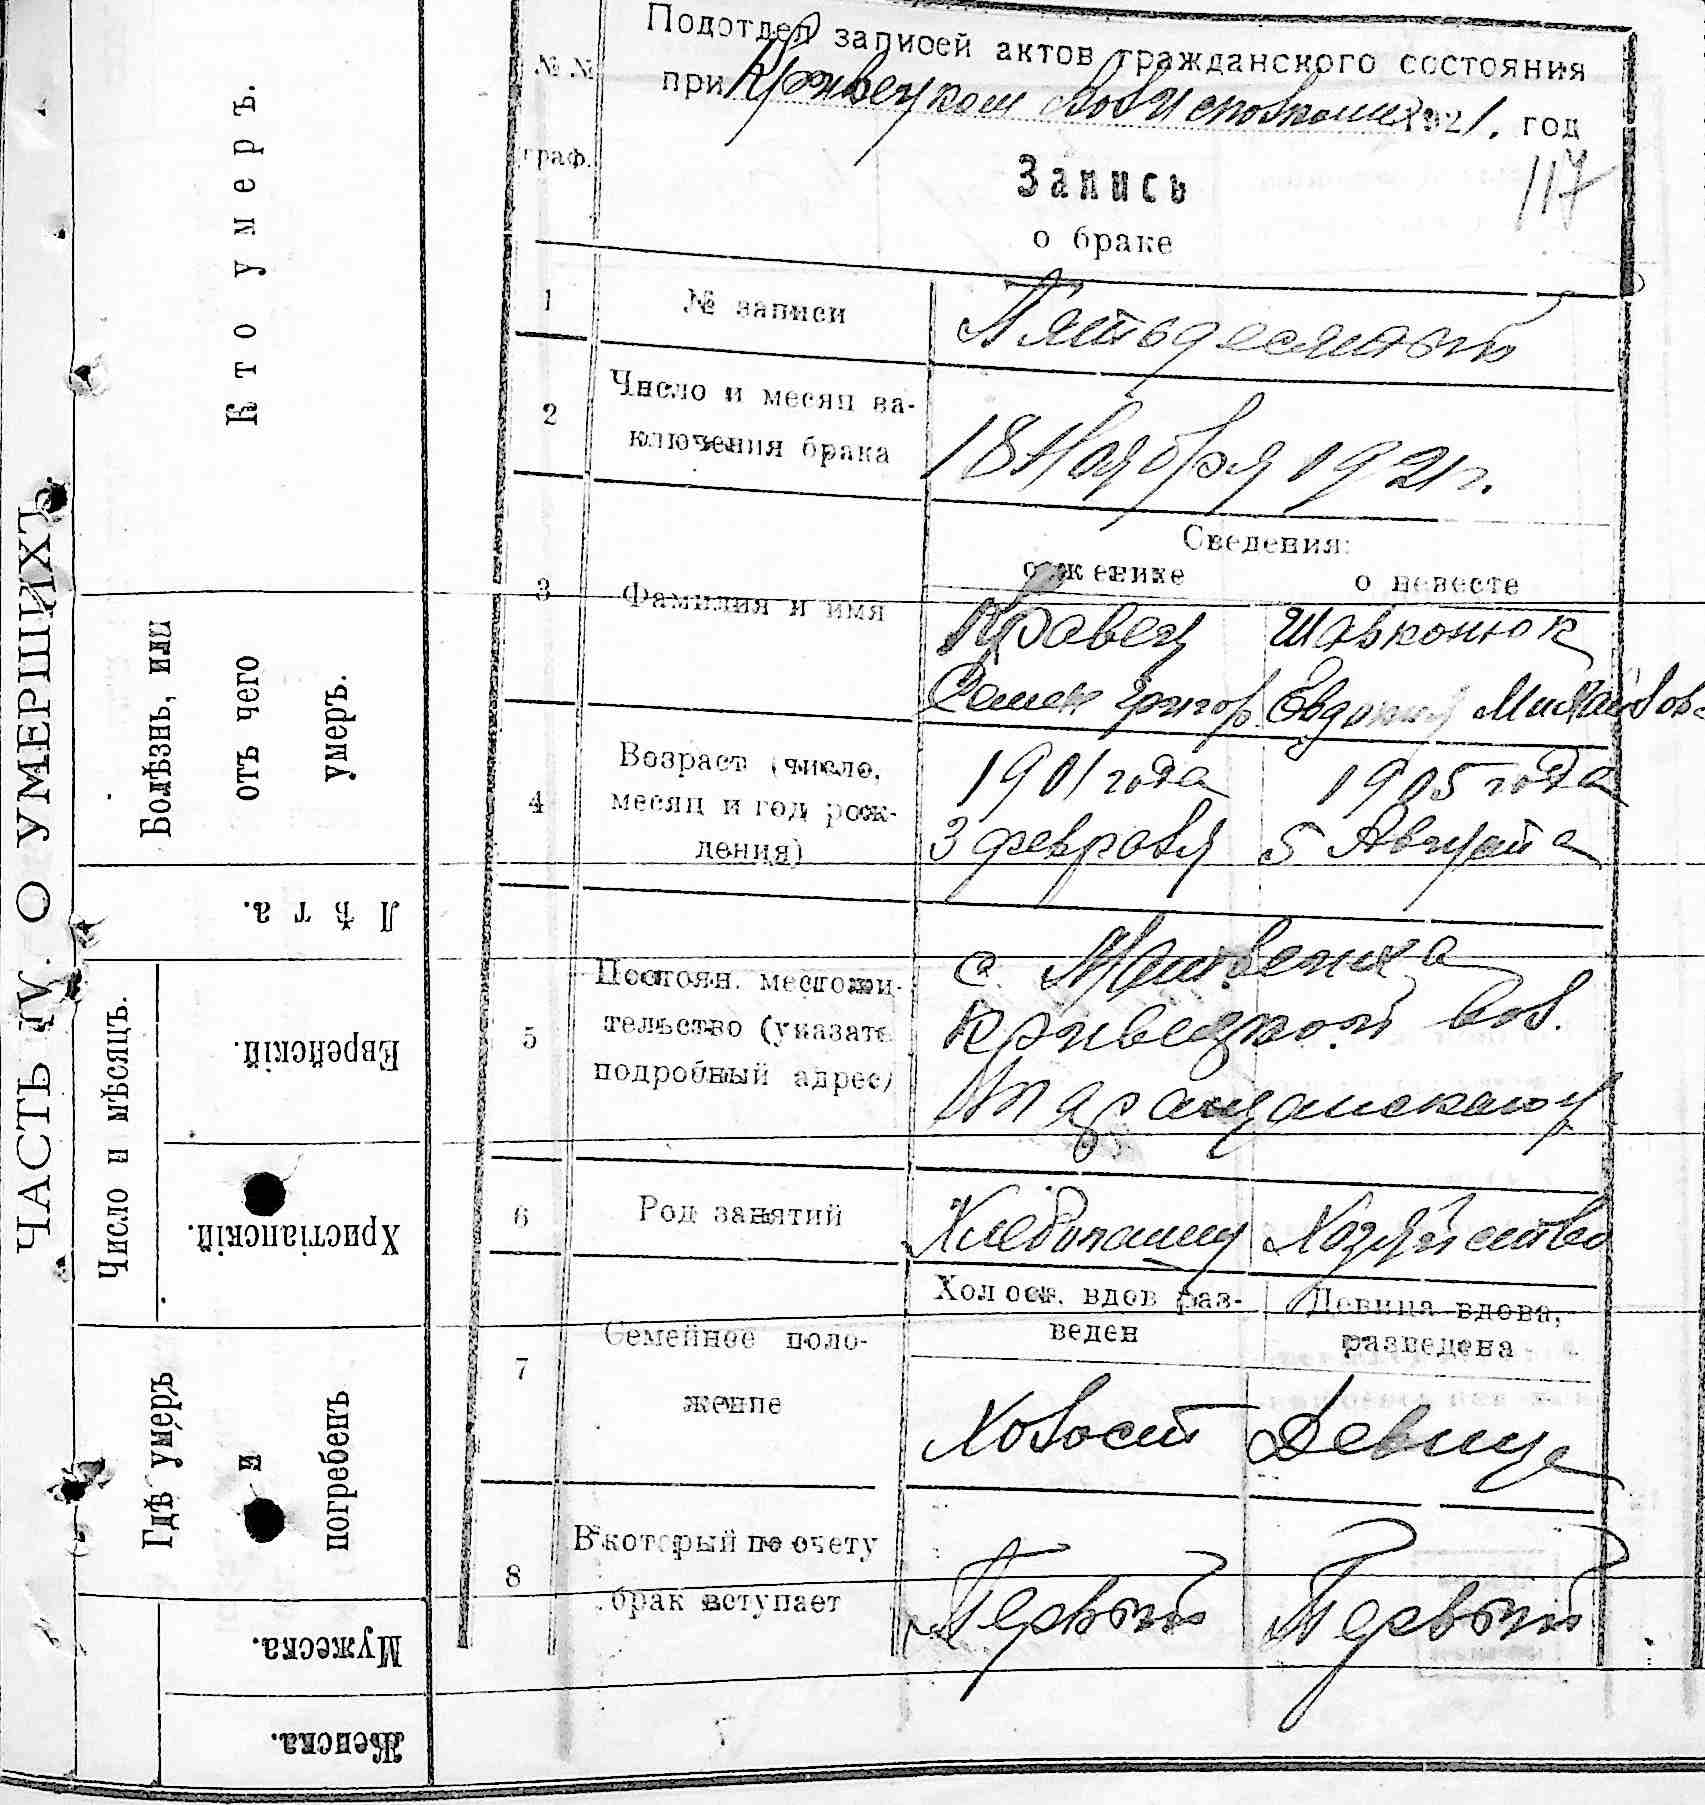 ЧАСТЬ IV. О УМЕРШИХЪ
Кто умеръ.
Болѣзнь, или
отъ чего
умеръ.
Лѣта.
Число и мѣсяцъ.
Еврейскій.
Христіанскій.
Гдѣ умеръ
и
погребенъ
Мужеска.
Женска.
№№
граф.
Подотдел записей актов гражданского состояния
при Кривецком Волисполкоме 1921. год
117
Запись
о браке
1
№ записи
Пятьдесятый
2
Число и месяц за-
ключения брака
18 Ноября 1921 г.
Сведения:
о женихе
о невесте
3
Фамилия и имя
Кравец
Семен Григор.
Шавконюк
Евдокия Михайлов-
4
Возраст (число,
месяц и год рож-
дения)
1901 года
3 февраля
1905 года
5 Августа
5
Постоян. местожи-
тельство (указать
подробный адрес)
с. Матвеиха
Кривецкой вол.
Таращанского у
6
Род занятий
Хлебопашец
Хозяйство
7
Семейное поло-
жение
Холост. вдов раз-
веден
Девица вдова,
разведена
Холост
Девица
8
В который по счету
брак вступает
Первый
Первый